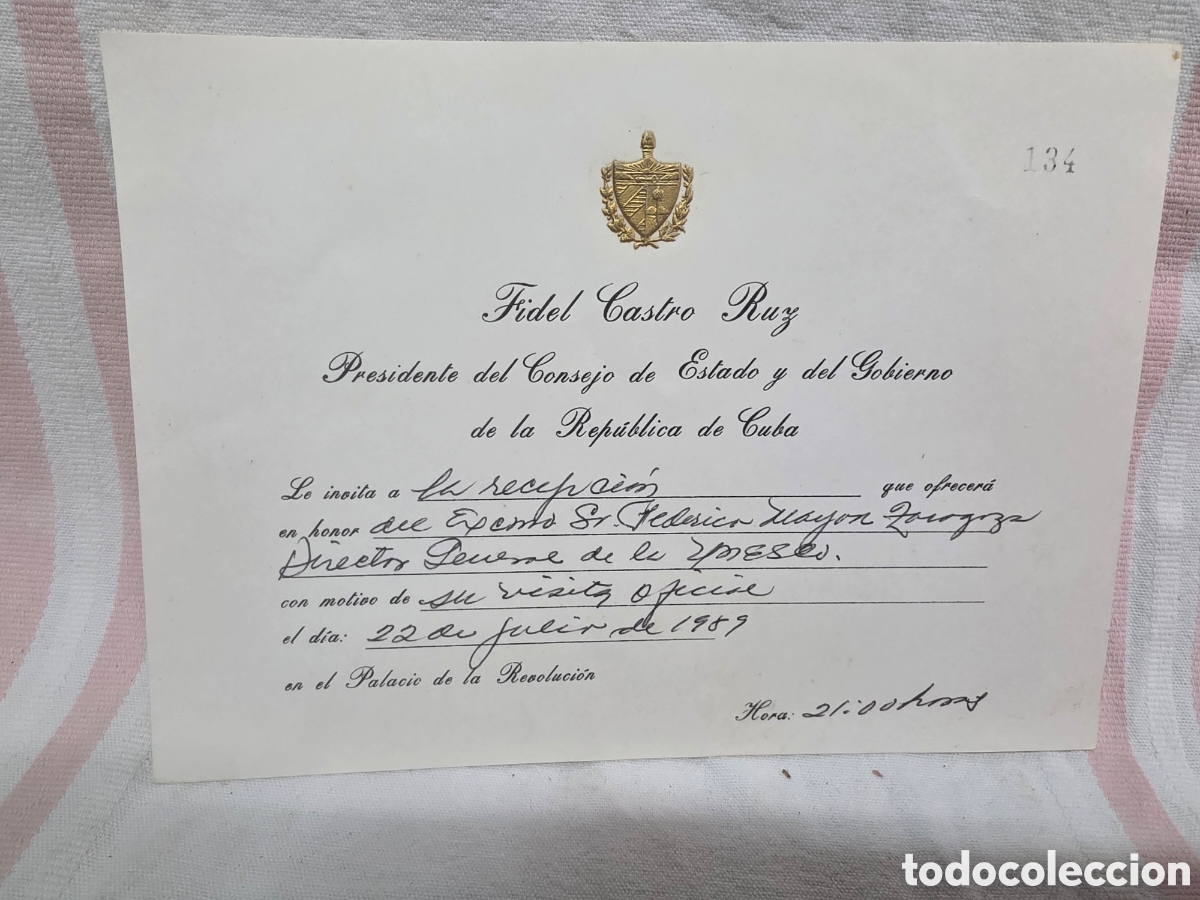 134
Fidel Castro Ruz
Presidente del Consejo de Estado y del Gobierno
de la República de Cuba
Le invita a la recepción que ofrecerá
en honor del Excmo Sr. Federico Mayor Zaragoza
Director General de la UNESCO.
con motivo de su visita oficial
el día: 22 de julio de 1989
en el Palacio de la Revolución
Hora: 21:00 horas
todocoleccion